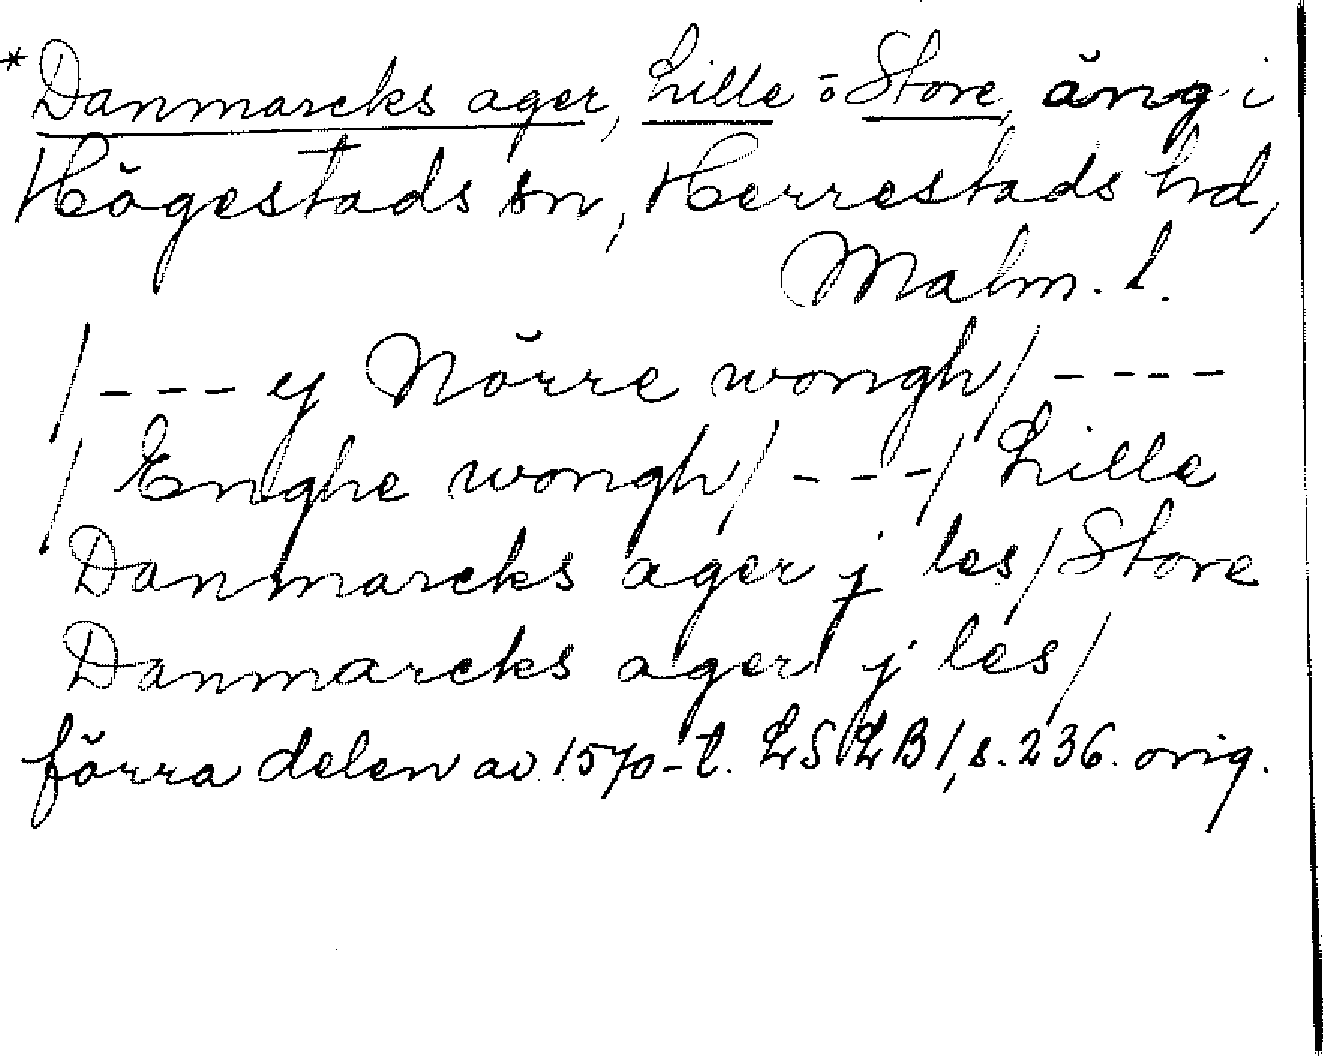 *Danmarcks ager, Lille o Store, äng i
Högestads sn, Herrestads hd,
Malm. l.
/ - - - y Nörre wongh / - - - -
/ Enghe wongh / - - - / Lille
Danmarcks ager j les / Store
Danmarcks ager j les /
förra delen av 1570-t. LSLB 1, s. 236. orig.